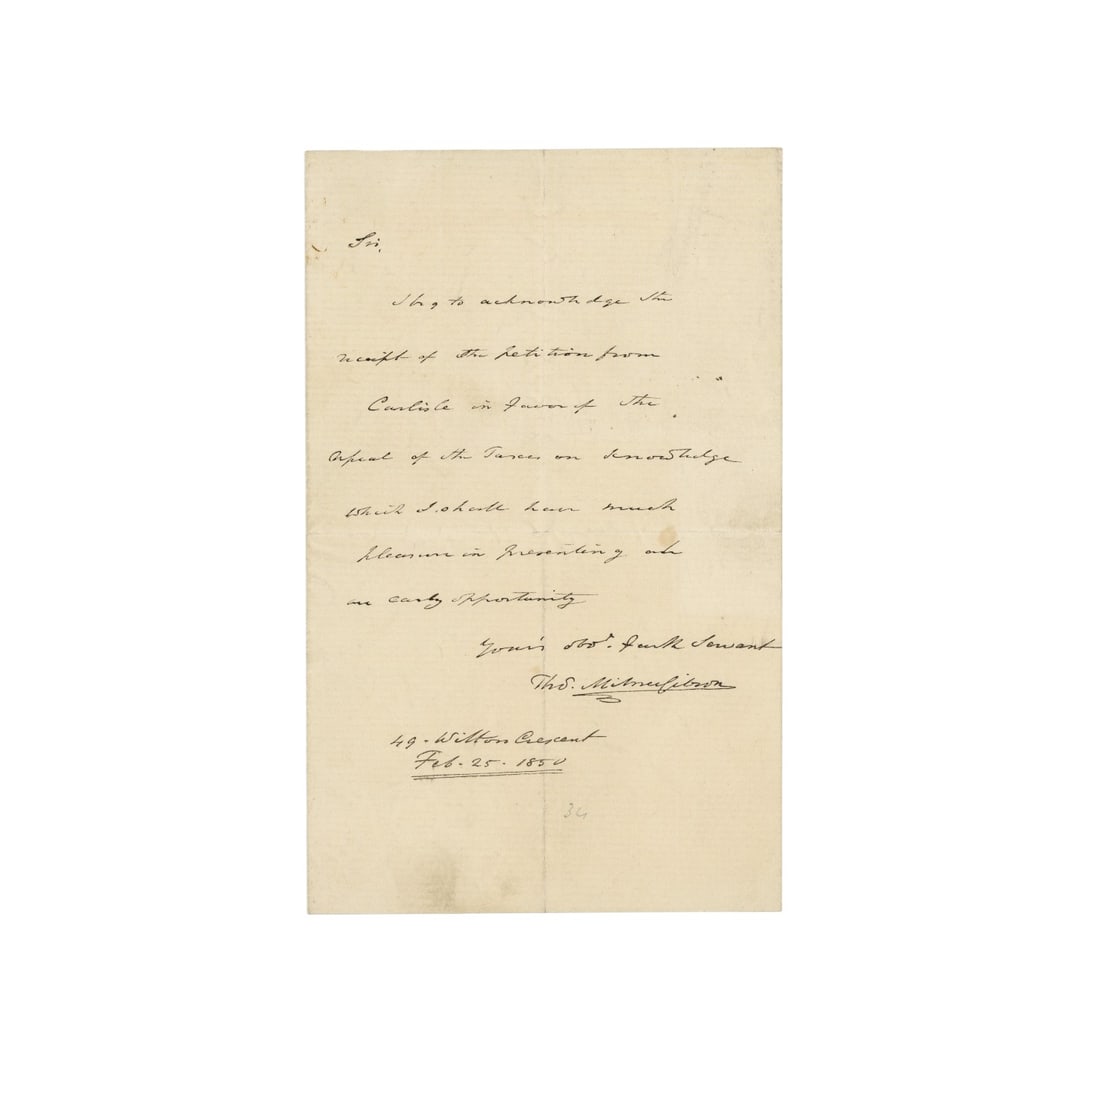 Sir,
I beg to acknowledge the
receipt of the petition from
Carlisle in favor of the
repeal of the Taxes on Knowledge
which I shall have much
pleasure in presenting at
an early opportunity
Your's obdt. faith Servant
Thos. Milner Gibson
49 - Wilton Crescent
Feb - 25 - 1850
34